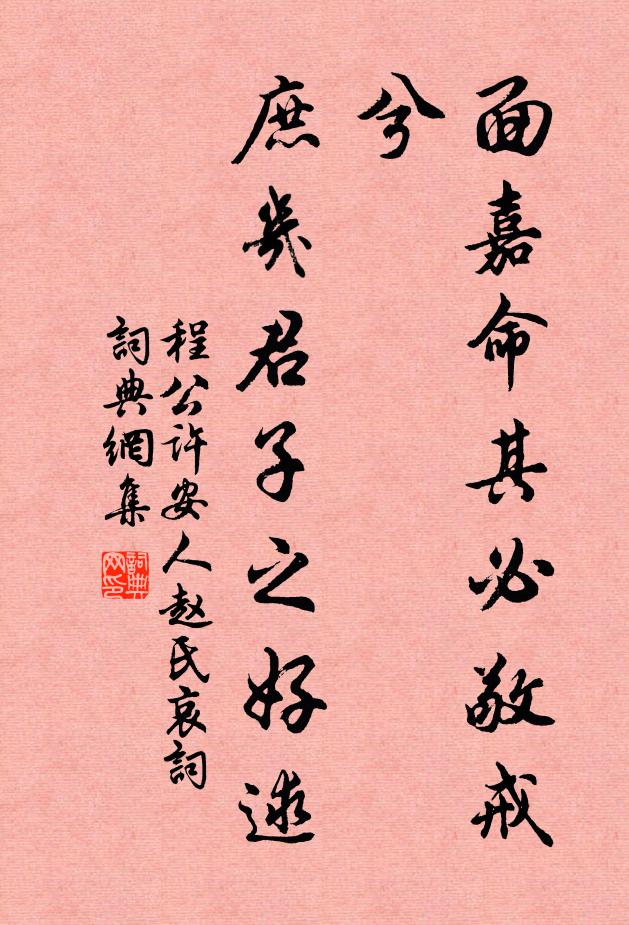 面嘉命其必敬戒
兮
庶幾君子之好逑
程公许安人赵氏哀詞
詞典網集
詞典网印